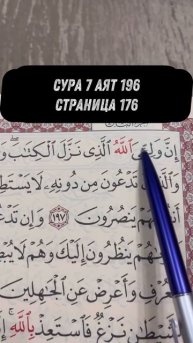 СУРА 7 АЯТ 196
СТРАНИЦА 176
إِنَّ وَلِـِّۧيَ ٱللَّهُ ٱلَّذِي نَزَّلَ ٱلْكِتَٰبَ
تَدْعُونَ مِن دُونِهِۦ لَا
يَنصُرُونَ ١٩٧ وَإِن
يَنظُرُونَ إِلَيْكَ وَهُمْ لَا
وَأَعْرِضْ عَنِ ٱلْجَٰهِلِينَ
نَزْغٌ فَٱسْتَعِذْ بِٱللَّهِ